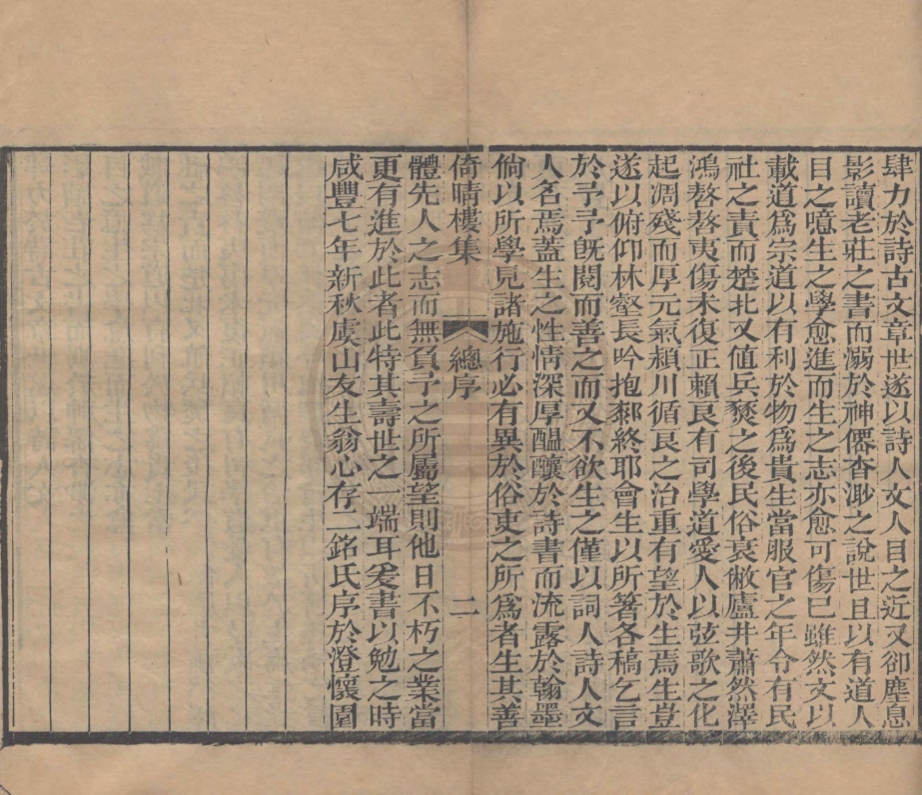 肆力於詩古文章世遂以詩人文人目之近又卻塵息
影讀老莊之書而溺於神僊杳渺之說世且以有道人
目之噫生之學愈進而生之志亦愈可傷巳雖然文以
載道爲宗道以有利於物爲貴生當服官之年令有民
社之責而楚北又值兵燹之後民俗衰敝廬井蕭然澤
鴻嗸嗸夷傷未復正賴良有司學道愛人以弦歌之化
起凋殘而厚元氣潁川循良之治重有望於生焉生豈
遂以俯仰林壑長吟抱䣛終耶會生以所箸各稿乞言
於予予旣閱而善之而又不欲生之僅以詞人詩人文
人名焉蓋生之性情深厚醞釀於詩書而流露於翰墨
倘以所學見諸施行必有異於俗吏之所爲者生其善
倚晴樓集 總序 二
體先人之志而無負予之所屬望則他日不朽之業當
更有進於此者此特其壽世之一端耳爰書以勉之時
咸豐七年新秋虞山友生翁心存二銘氏序於澄懷園